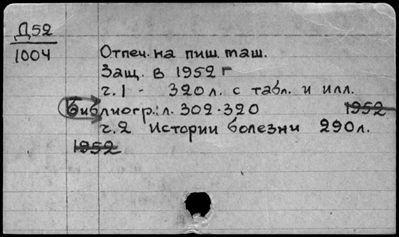 Д52
1004
Отпеч. на пиш. маш.
Защ. в 1952 г
ч. 1 - 320 л. с табл. и илл.
Библиогр.: л. 302-320 1952
ч. 2 Истории болезни 290 л.
1952